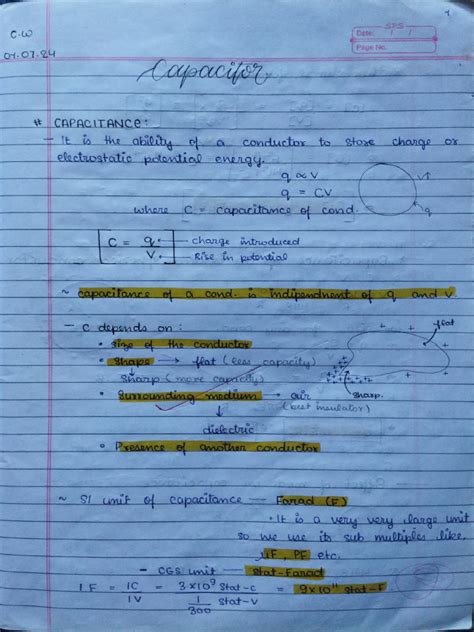 C.W
04.07.24
Date: / /
Page No.
Capacitor
# CAPACITANCE:
– It is the ability of a conductor to store charge or
electrostatic potential energy.
q ∝ V
q = CV
where C = capacitance of cond.
C = q — charge introduced
V — Rise in potential
~ capacitance of a cond. is indipendnent of q and V.
– C depends on:
• Size of the conductor
• Shape → flat (less capacity)
↓ sharp (more capacity)
• Surrounding medium → air
(best insulator)
↓
dielectric
• Presence of another conductor
flat
sharp.
~ SI unit of capacitance — Farad (F)
• It is a very very large unit
so we use its sub multiples like,
μF, PF etc.
– CGS unit — Stat-Farad
1F = 1C / 1V = 3×10⁹ Stat-C / 1/300 Stat-V = 9×10¹¹ Stat-F